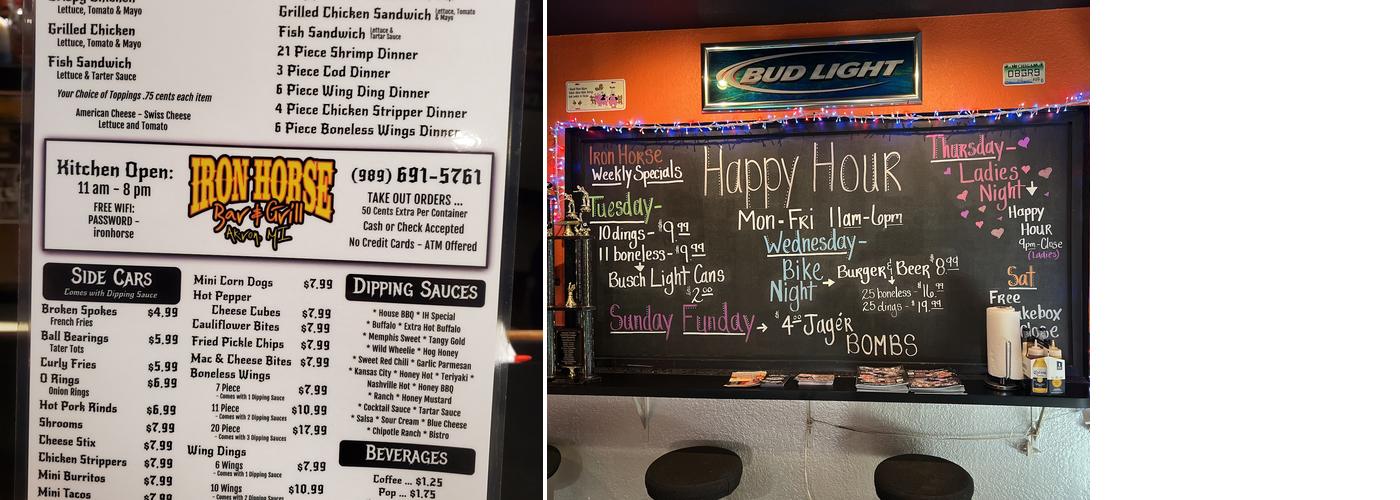 Lettuce, Tomato & Mayo
Grilled Chicken
Lettuce, Tomato & Mayo
Fish Sandwich
Lettuce & Tarter Sauce
Your Choice of Toppings .75 cents each item
American Cheese - Swiss Cheese
Lettuce and Tomato
Grilled Chicken Sandwich Lettuce, Tomato & Mayo
Fish Sandwich Lettuce & Tartar Sauce
21 Piece Shrimp Dinner
3 Piece Cod Dinner
6 Piece Wing Ding Dinner
4 Piece Chicken Stripper Dinner
6 Piece Boneless Wings Dinner
Kitchen Open:
11 am - 8 pm
FREE WIFI:
PASSWORD -
ironhorse
IRON HORSE
Bar & Grill
Akron, MI
(989) 691-5761
TAKE OUT ORDERS ...
50 Cents Extra Per Container
Cash or Check Accepted
No Credit Cards - ATM Offered
SIDE CARS
Comes with Dipping Sauce
Broken Spokes $4.99
French Fries
Ball Bearings $5.99
Tater Tots
Curly Fries $5.99
O Rings $6.99
Onion Rings
Hot Pork Rinds $6.99
Shrooms $7.99
Cheese Stix $7.99
Chicken Strippers $7.99
Mini Burritos $7.99
Mini Tacos $7.99
Mini Corn Dogs $7.99
Hot Pepper
Cheese Cubes $7.99
Cauliflower Bites $7.99
Fried Pickle Chips $7.99
Mac & Cheese Bites $7.99
Boneless Wings
7 Piece $7.99
- Comes with 1 Dipping Sauce
11 Piece $10.99
- Comes with 2 Dipping Sauces
20 Piece $17.99
- Comes with 3 Dipping Sauces
Wing Dings
6 Wings $7.99
- Comes with 1 Dipping Sauce
10 Wings $10.99
- Comes with 2 Dipping Sauces
DIPPING SAUCES
* House BBQ * IH Special
* Buffalo * Extra Hot Buffalo
* Memphis Sweet * Tangy Gold
* Wild Wheelie * Hog Honey
* Sweet Red Chili * Garlic Parmesan
* Kansas City * Honey Hot * Teriyaki *
Nashville Hot * Honey BBQ
* Ranch * Honey Mustard
* Cocktail Sauce * Tartar Sauce
* Salsa * Sour Cream * Blue Cheese
* Chipotle Ranch * Bistro
BEVERAGES
Coffee ... $1.25
Pop ... $1.75
BUD LIGHT
OBGR9
Iron Horse
Weekly Specials
Tuesday-
10 dings - $9.99
11 boneless - $9.99
Busch Light Cans
$2.00
Sunday Funday → $4.00 Jagér
BOMBS
Happy Hour
Mon-Fri 11am-6pm
Wednesday-
Bike
Night → Burger & Beer $8.99
25 boneless - $16.99
25 dings - $19.99
Thursday-
Ladies
Night
Happy
Hour
9pm-Close
(Ladies)
Sat
Free
kebox
Close